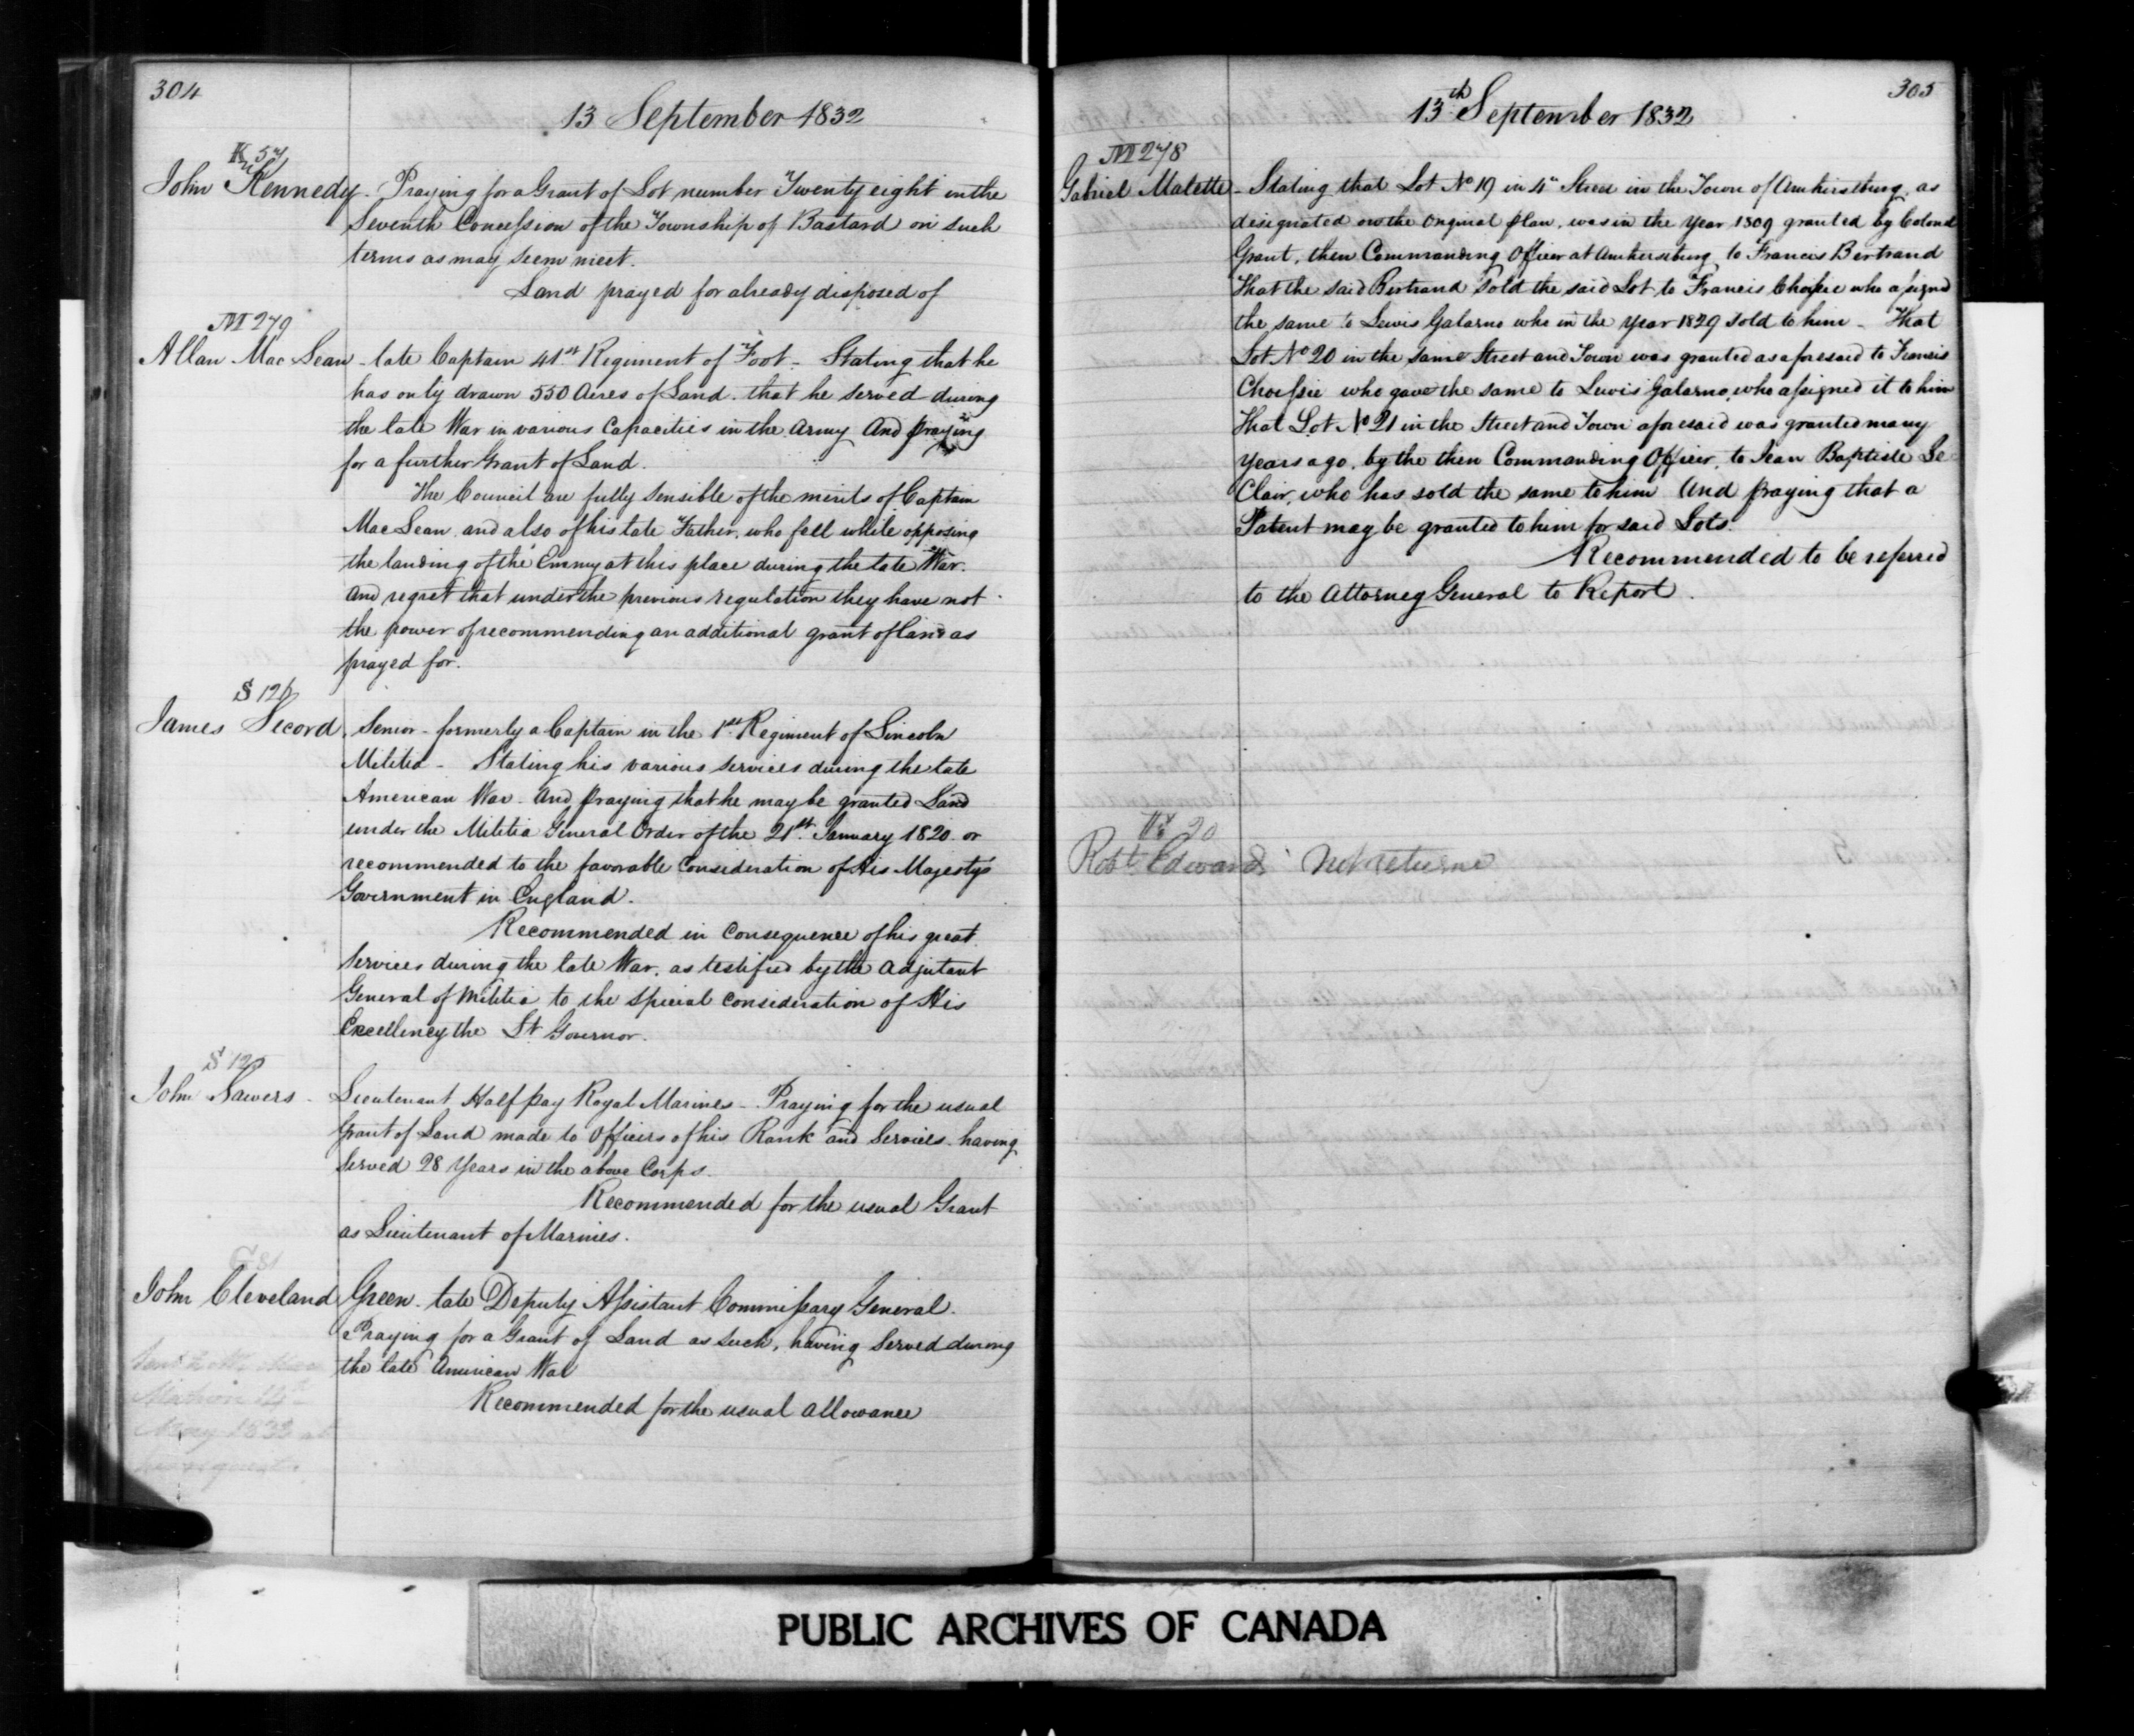 304
13 September 1832
K 57
John Kennedy - Praying for a Grant of Lot number Twenty eight in the
Seventh Concession of the Township of Bastard on such
terms as may seem meet.
Land prayed for already disposed of
M 279
Allan Mac Lean - late Captain 41st Regiment of Foot - Stating that he
has only drawn 550 Acres of Land. that he served during
the late War in various Capacities in the Army And praying
for a further Grant of Land.
The Council are fully sensible of the merits of Captain
Mac Lean and also of his late Father, who fell while opposing
the landing of the Enemy at this place during the late War.
And regret that under the previous regulation they have not
the power of recommending an additional grant of land as
prayed for.
S 126
James Secord, Senior - formerly a Captain in the 1st Regiment of Lincoln
Militia - Stating his various services during the late
American War - And praying that he may be granted Land
under the Militia General Order of the 21st January 1820 or
recommended to the favorable Consideration of His Majestys
Government in England.
Recommended in Consequence of his great
Services during the late War, as testified by the Adjutant
General of Militia to the Special Consideration of His
Excellency the Lt Governor.
S 125
John Sawers - Lieutenant Half pay Royal Marines - Praying for the usual
Grant of Land made to Officers of his Rank and Services having
served 28 Years in the above Corps.
Recommended for the usual Grant
as Lieutenant of Marines.
John Cleveland Green. late Deputy Assistant Commissary General.
Praying for a Grant of Land as such, having Served during
the late American War
Recommended for the usual allowance
May 1833 at
305
13th September 1832
M 278
Gabriel Malette - Stating that Lot No 19 in 4th Street in the Town of Amherstburg, as
designated on the Original plan, was in the Year 1809 granted by Colonel
Grant, then Commanding Officer at Amherstburg to Francis Bertrand
That the said Bertrand Sold the said Lot to Francis Choisie who assigned
the same to Lewis Galarno who in the Year 1829 sold to him - That
Lot No 20 in the same Street and Town was granted as aforesaid to Francis
Choissie who gave the same to Lewis Galarno, who assigned it to him
That Lot No 21 in the Street and Town aforesaid was granted many
Years ago, by the then Commanding Officer, to Jean Baptiste Le
Clair, who has sold the same to him And praying that a
Patent may be granted to him for said Lots.
Recommended to be referred
to the Attorney General to Report.
20
Robt Edwards
PUBLIC ARCHIVES OF CANADA